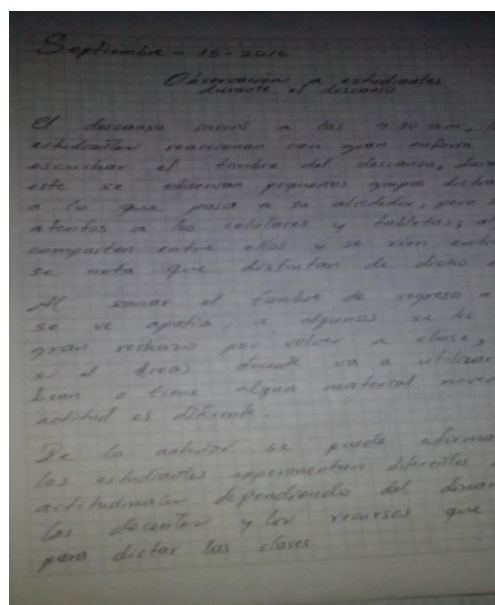 Septiembre - 15-2016
Observación a estudiantes
durante el descanso
El descanso inició a las 9:30 am,
estudiantes reaccionan con gran euforia
escuchar el timbre del descanso,
este se observan pequeños grupos
a lo que pasa a su alrededor, pero
atentos a los celulares y tabletas,
comparten entre ellos y se rien
se nota que disfrutan de dicho
Al sonar el timbre de regreso a
se ve apatia, a algunos se les
gran rechazo por volver a clase,
si el docente va a utilizar
o time algun material
actitud es diferente.
De lo anterior se puede
los estudiantes experimentan diferentes
actitudinales dependiendo del
los docentes y los recursos que
para dictar las clases